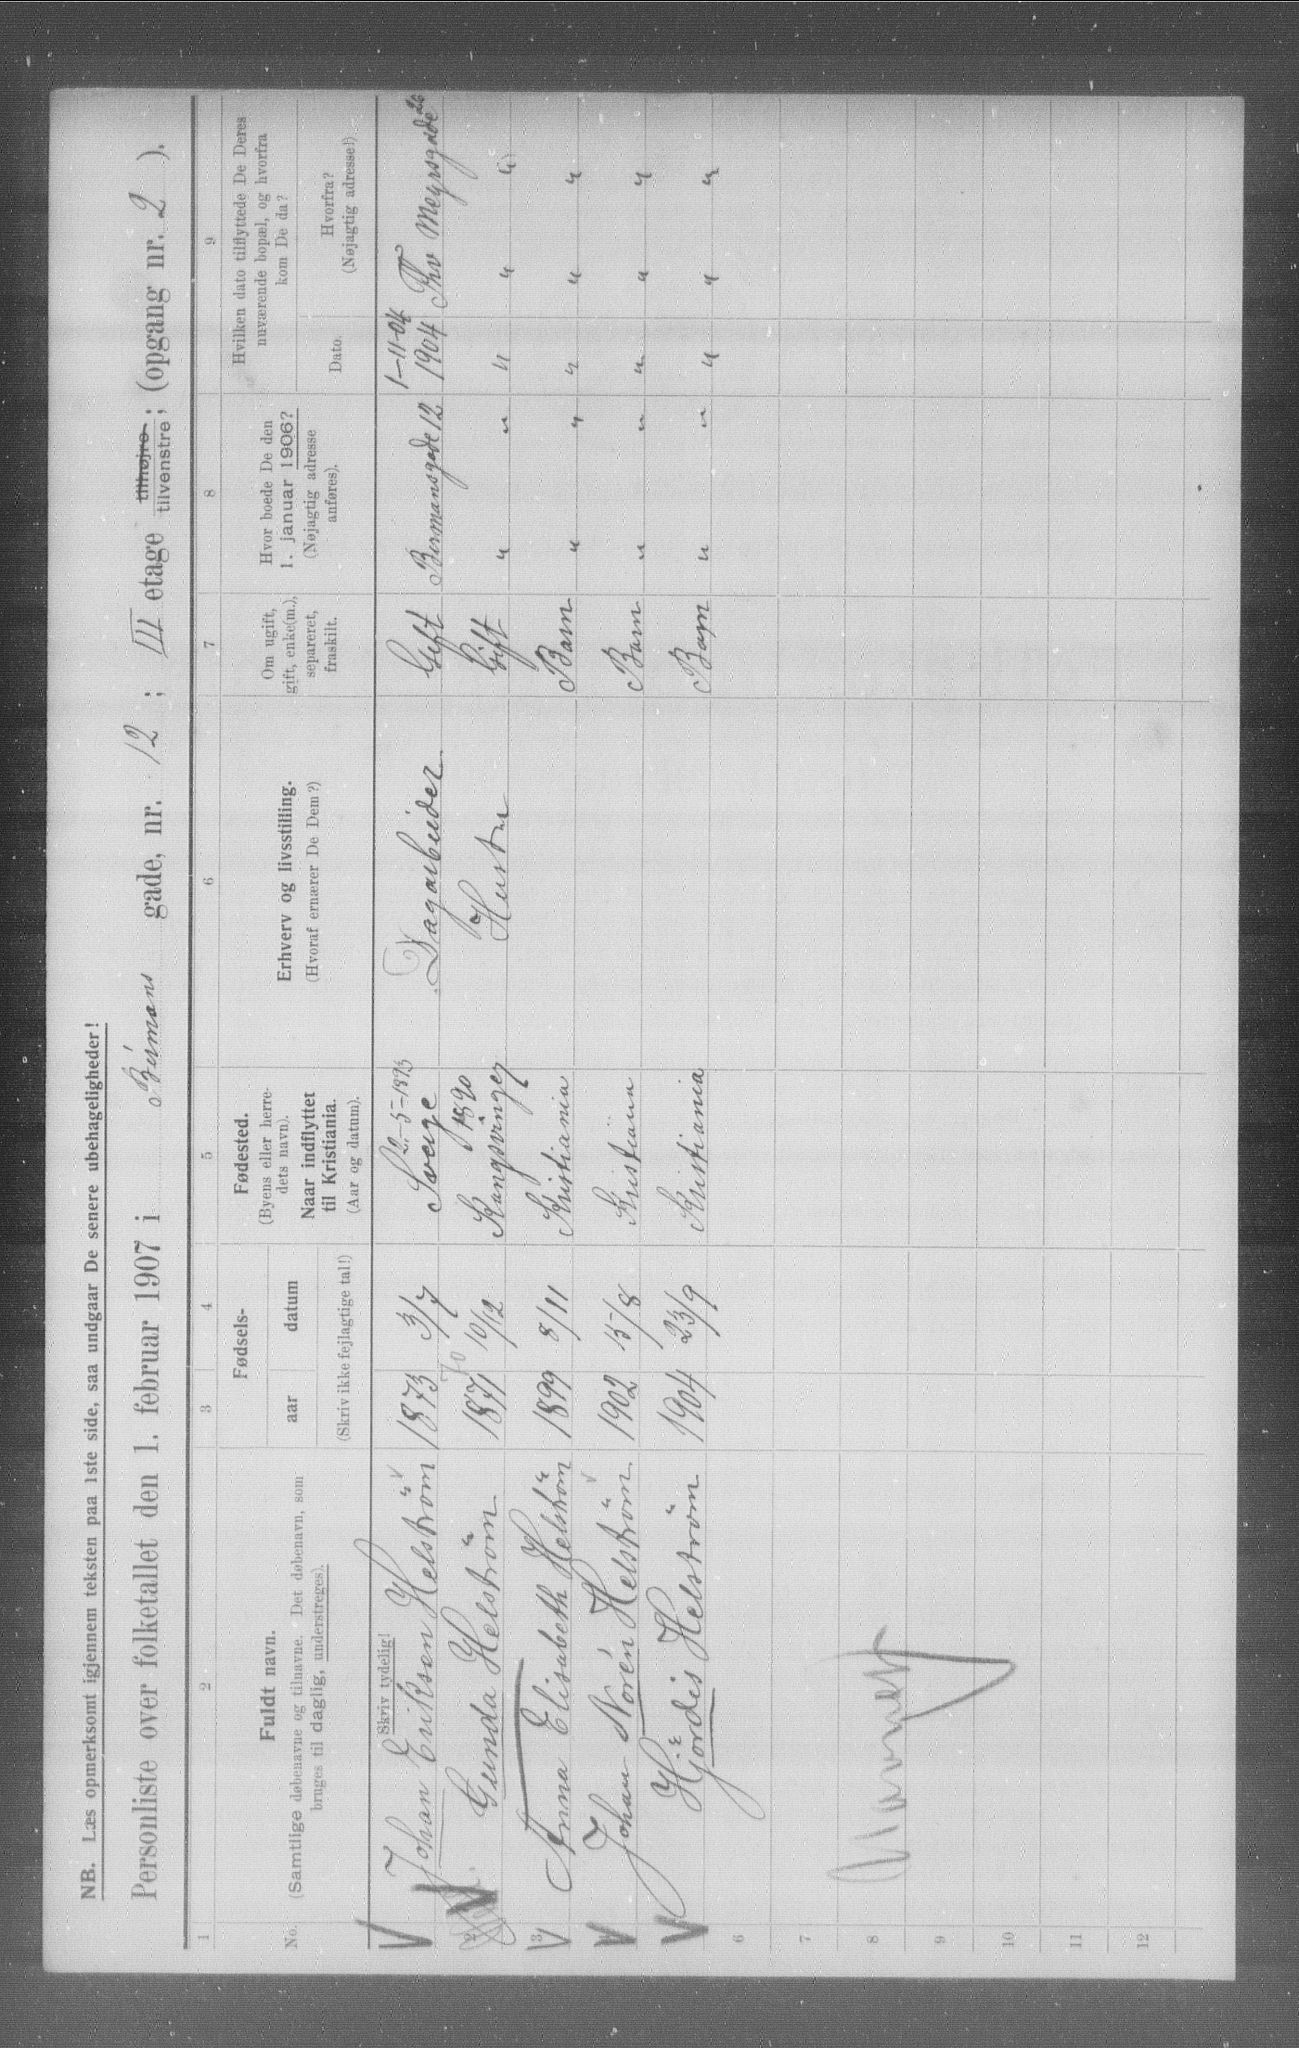 NB. Læs opmerksomt igjennem teksten paa 1ste side, saa undgaar De senere ubehageligheder!
Personliste over folketallet den 1. februar 1907 i Birmans gade, nr. 12 ; III etage tilhøjre tilvenstre ; (opgang nr. 2 ).
1 2 3 4 5 6 7 8 9
No.
Fuldt navn.
(Samtlige døbenavne og tilnavne. Det døbenavn, som
bruges til daglig, understreges).
Fødsels-
aar datum
(Skriv ikke fejlagtige tal!)
Fødested.
(Byens eller herre-
dets navn).
Naar indflyttet
til Kristiania.
(Aar og datum).
Erhverv og livsstilling.
(Hvoraf ernærer De Dem?)
Om ugift,
gift, enke(m.),
separeret,
fraskilt.
Hvor boede De den
1. januar 1906?
(Nøjagtig adresse
anføres).
Hvilken dato tilflyttede De Deres
nuværende bopæl, og hvorfra
kom De da?
Dato.
Hvorfra?
(Nøjagtig adresse!)
Skriv tydelig!
2-5-1893 1-11-04
Johan Eriksen Helström 1873 3/7 Sverge Dagarbeider Gift Bermansgade 12 1904 Thv Meyrsgade 26
70 1890
2 Gunda Helström 1871 10/12 Kongsvinger Hustru Gift " " " " "
3 Anna Elisabeth Helström 1899 8/11 Kristiania Barn " " " " "
Johan Norén Helström 1902 15/8 Kristiania Barn " " " " "
Hjördis Helström 1904 23/9 Kristiania Barn " " " " "
6
7
8
9
10
11
12